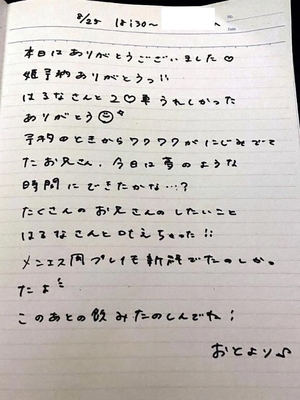 8/25 18:30〜
No.
Date
本日はありがとうございました♡
姫予約ありがとうっ!!
はるなさんと2♡車うれしかった
ありがとう☺
予約のときからワクワクがにじみでて
たお兄さん、今日は夢のような
時間にできたかな…?
たくさんのお兄さんのしたいこと
はるなさんと叶えちゃった!!
メンエス風プレイも新鮮でたのしかっ
たよ
このあとの飲みたのしんでね!
おとより♪